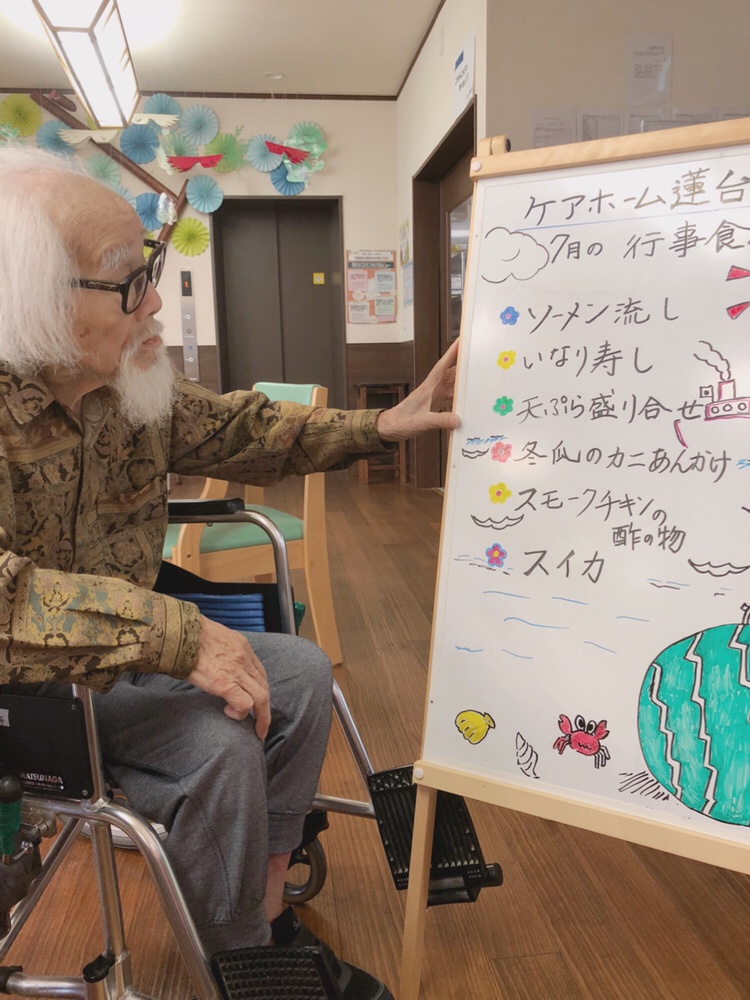 ケアホーム蓮台
7月の 行事食
ソーメン流し
いなり寿し
天ぷら盛り合せ
冬瓜のカニあんかけ
スモークチキンの
酢の物
スイカ
MATSUNAGA